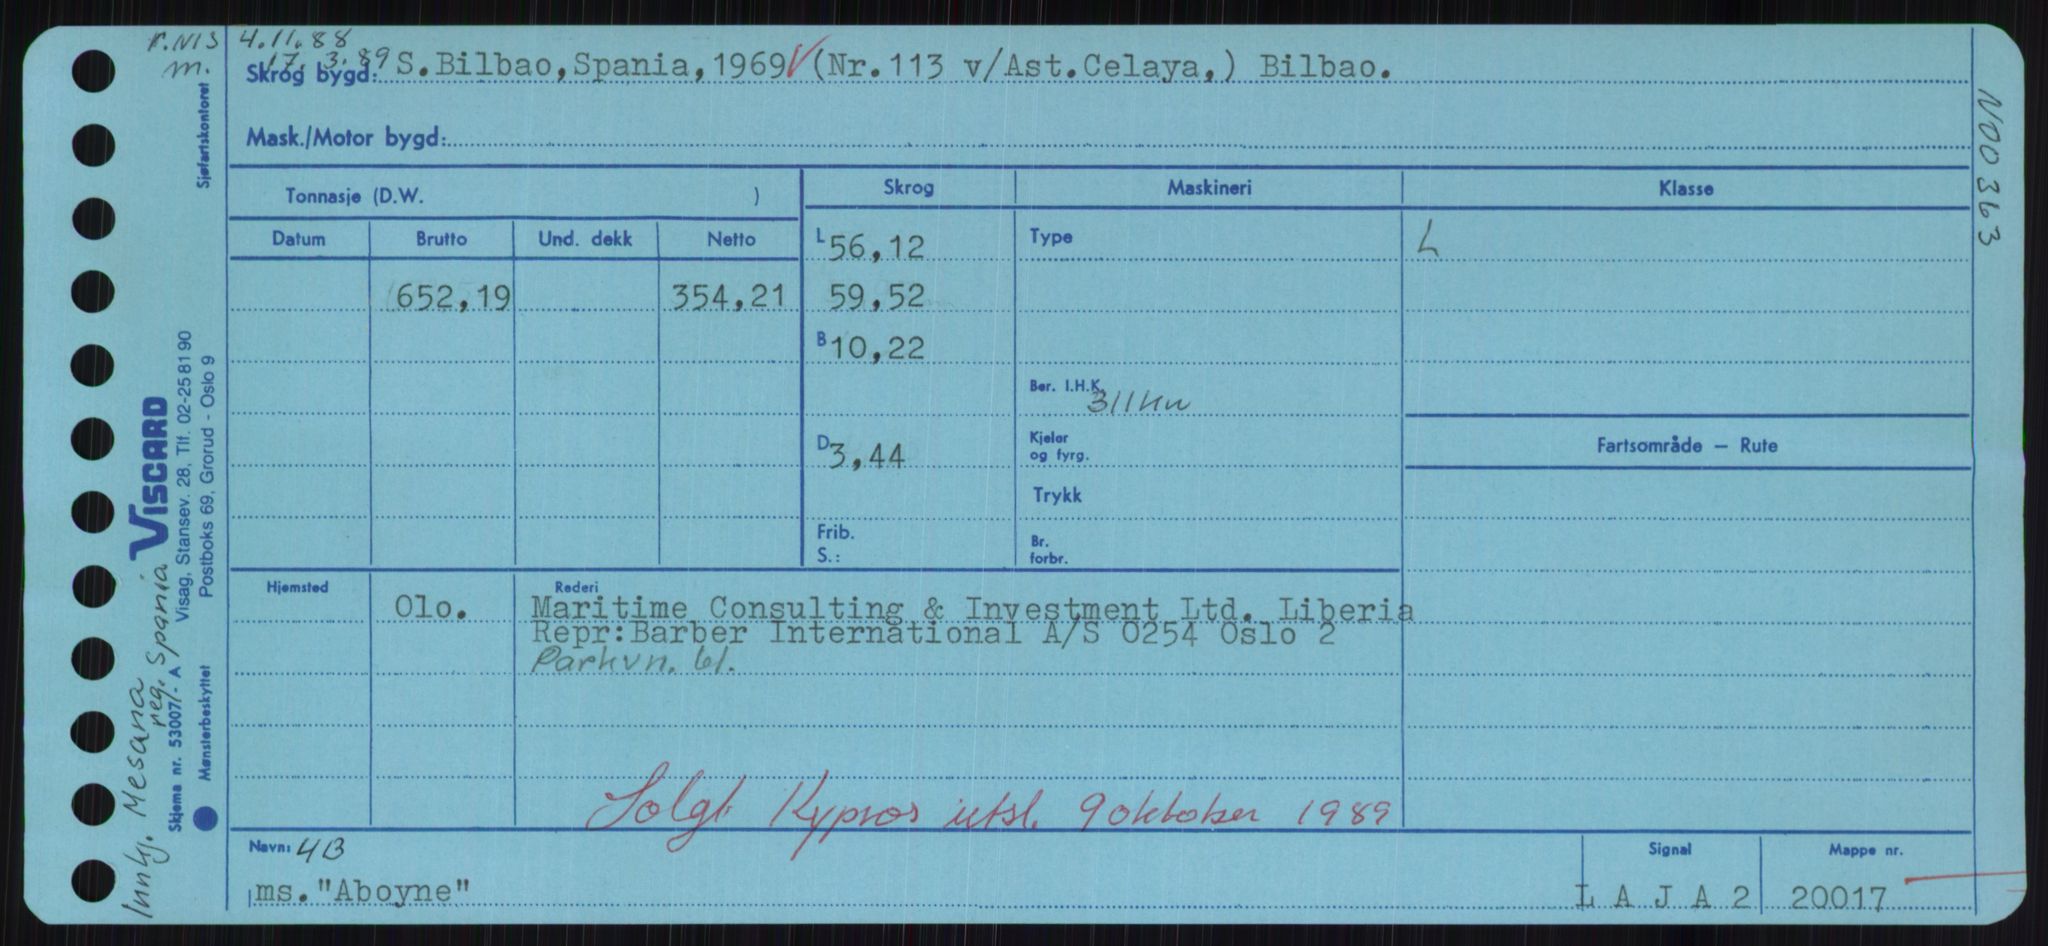 r. NIS 4.11.88
m. 17. 3. 89
Skrog bygd: S.Bilbao,Spania,1969 (Nr.113 v/Ast.Celaya,) Bilbao.
Mask./Motor bygd:
Tonnasje (D.W. )
Skrog
Maskineri
Klasse
Datum
Brutto
Und. dekk
Netto
L 56,12
Type
L
652,19
354,21
59,52
B 10,22
Ber. I.H.K. 311 kw
D 3,44
Kjelar
og fyrg.
Fartsområde — Rute
Trykk
Frib.
S.:
Br.
forbr.
Hjemsted
Olo.
Rederi
Maritime Consulting & Investment Ltd. Liberia
Repr:Barber International A/S 0254 Oslo 2
Parkvn. 61.
Solgt Kypros utsl. 9 oktober 1989
Navn: 4B
ms."Aboyne"
Signal
L A J A 2
Mappe nr.
20017
N00363
Sjøfartskontoret
Innkj. Mesana
reg. Spania
VISCARD
Skjema nr. 53007/- A Visag, Stansev. 28, Tlf. 02-25 81 90
Mønsterbeskyttet Postboks 69, Grorud - Oslo 9